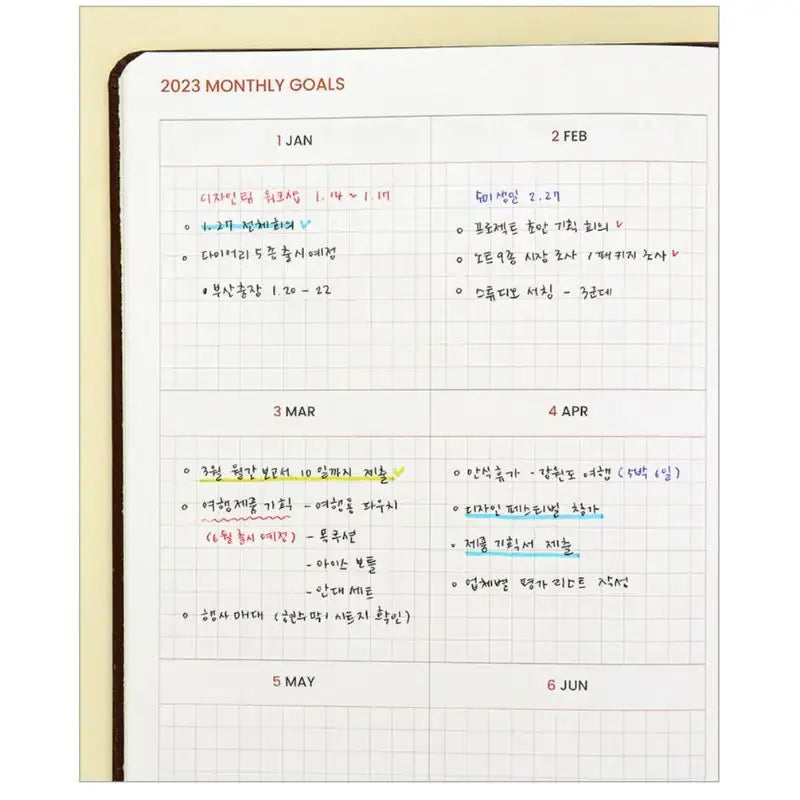 2023 MONTHLY GOALS
1 JAN
디자인팀 워크샵 1.14 ~ 1.17
1.27 전체회의
다이어리 5종 출시예정
부산출장 1.20 - 22
2 FEB
수미생일 2.27
프로젝트 초안 기획 회의
노트 9종 시장 조사 / 패키지 조사
스튜디오 서칭 - 3군데
3 MAR
3월 월간보고서 10일까지 제출
여행제품 기획 - 여행용 파우치
(6월 출시 예정) - 목쿠션
- 아이스 보틀
- 안대 세트
행사 매대 (현수막, 시트지 확인)
4 APR
안식휴가 - 강원도 여행 (5박 6일)
디자인 페스티벌 참가
제품 기획서 제출
업체별 평가리스트 작성
5 MAY
6 JUN